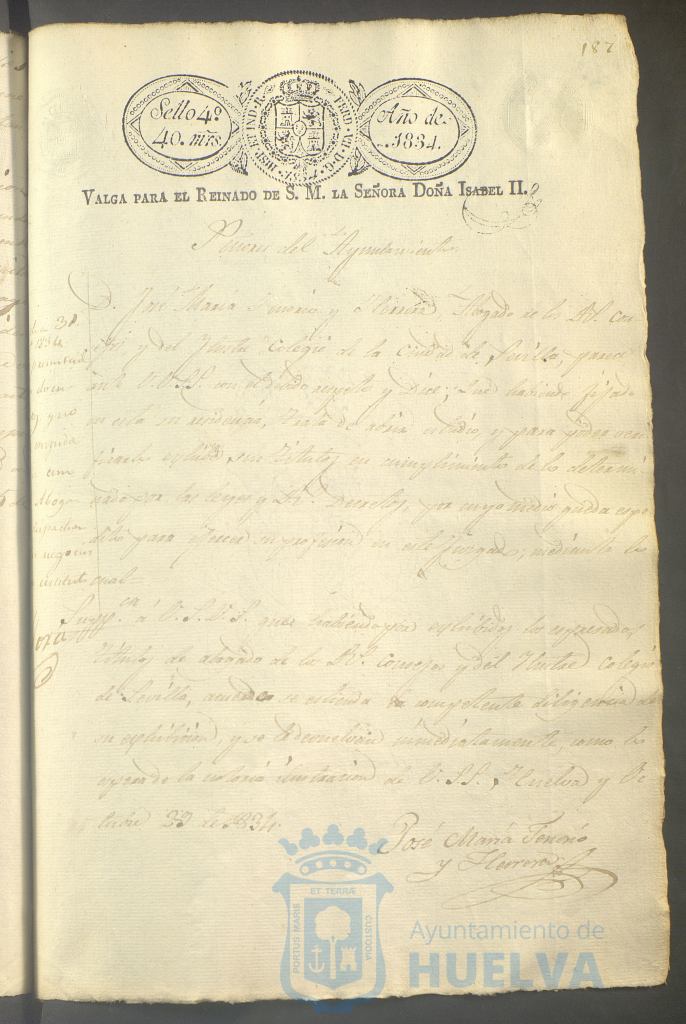 187
Sello 4º
40. mrs.
Año de
1834.
VALGA PARA EL REINADO DE S. M. LA SEÑORA DOÑA ISABEL II.
Señores del Ayuntamiento
D. José Maria Tenorio y Herrera Abogado de los Rl. Con
y del Ilustre Colegio de la Ciudad de Sevilla, parece
ante V.V.SS. con el debido respeto y Dice; Que habiendo fijado
en esta su residencia, trata de abrir estudio, y para poder veri
ficarlo exhibe sus Titulos en cumplimiento de lo determi
nado por las leyes y Rl. Decretos, por cuyo medio queda espe
dito para ejercer su profesion en este Juzgado; mediante lo
cual=
Suppca. á V.S.V.S. que habiendo por exhibidos los espresados
titulos de abogado de los Rl. Consejos y del Ilustre Colegio
de Sevilla, acuerden se estienda la competente diligencia de
su exhibicion, y se le devuelvan inmediatamente, como lo
espera de la notoria ilustracion de V.SS. Huelva y Oc
tubre 29 de 1834.
José María Tenorio
y Herrera
y no
Abogo
negocios
instituto
PORTUS MARIS
ET TERRÆ
CUSTODIA
Ayuntamiento de
HUELVA